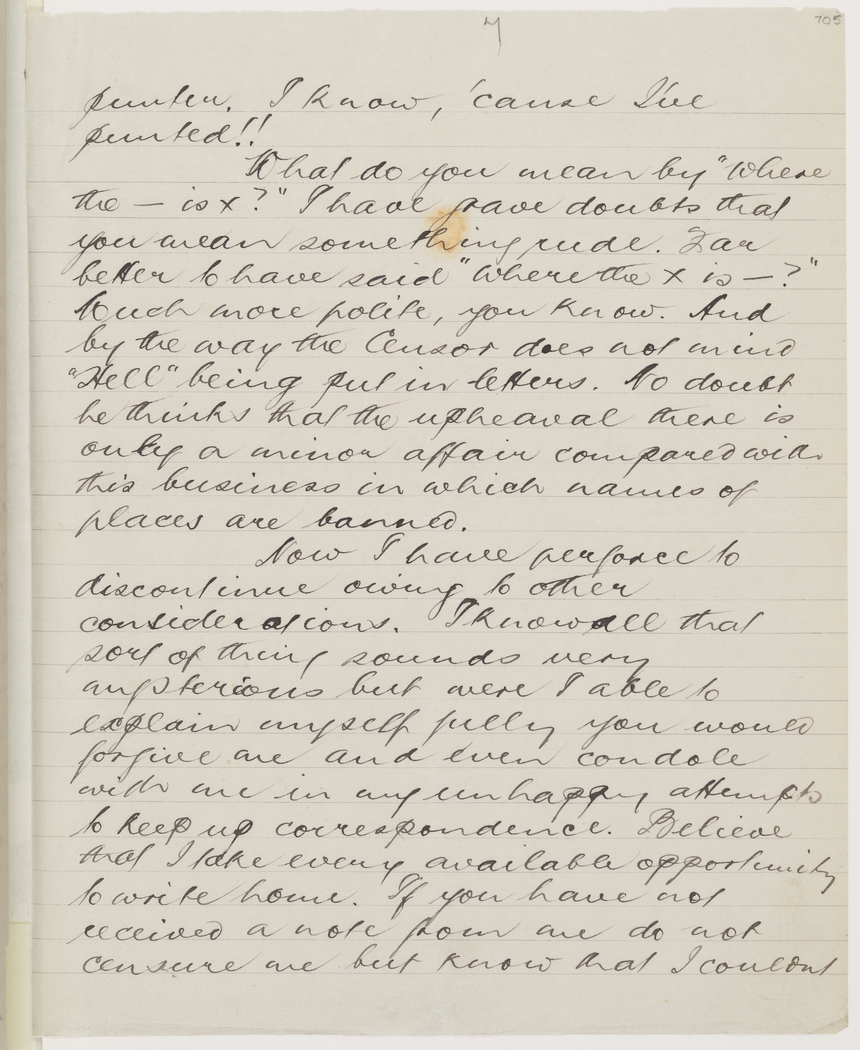 7
705
punter. I know, 'cause I've
punted!!
What do you mean by "Where
the — is x?" I have grave doubts that
you mean something rude. Far
better to have said "Where the x is —?"
Much more polite, you know. And
by the way the Censor does not mind
"Hell" being put in letters. No doubt
he thinks that the upheaval there is
only a minor affair compared with
this business in which names of
places are banned.
Now I have perforce to
discontinue owing to other
considerations. I know all that
sort of thing sounds very
mysterious but were I able to
explain myself fully you would
forgive me and even condole
with me in my unhappy attempts
to keep up correspondence. Believe
that I take every available opportunity
to write home. If you have not
received a note from me do not
censure me but know that I couldnt